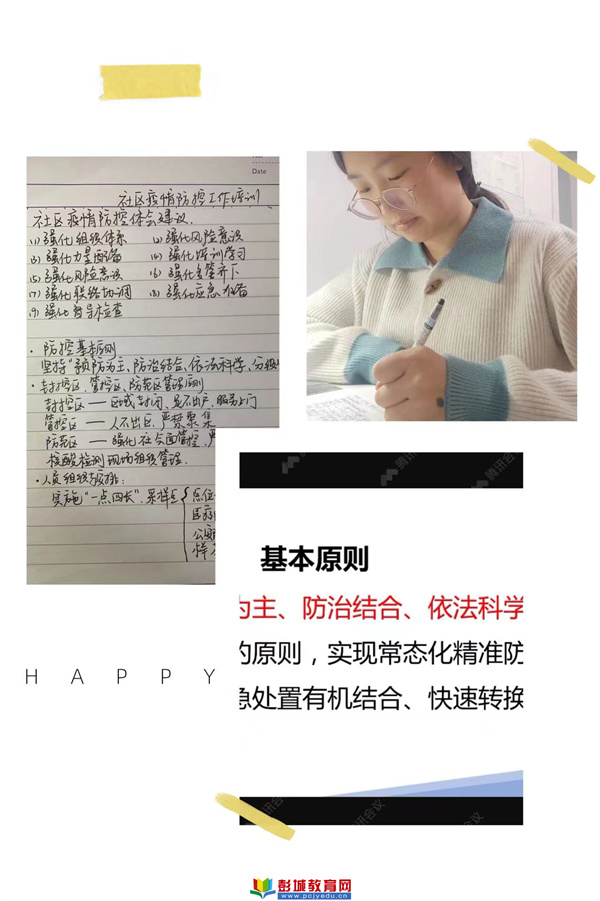 Date
社区疫情防控工作培训
社区疫情防控体会建议.
(1) 强化组织体系 (2) 强化风险意识
(3) 强化力量配备 (4) 强化培训学习
(5) 强化风险意识 (6) 强化多管齐下
(7) 强化联络协调 (8) 强化应急准备
(9) 强化督导检查
· 防控基本原则
坚持"预防为主、防治结合、依法科学、分级
· 封控区、管控区、防范区管理原则
封控区——区域封闭、足不出户、服务上门
管控区——人不出区、严禁聚集
防范区——强化社会面管控,严
核酸检测现场组织管理.
· 人员组织安排:
实施"一点四长",采样点
点位
医疗
公
样
基本原则
为主、防治结合、依法科学
的原则，实现常态化精准防
急处置有机结合、快速转换
HAPPY
腾讯会议
腾讯会议
彭城教育网
www.pcjyedu.cn